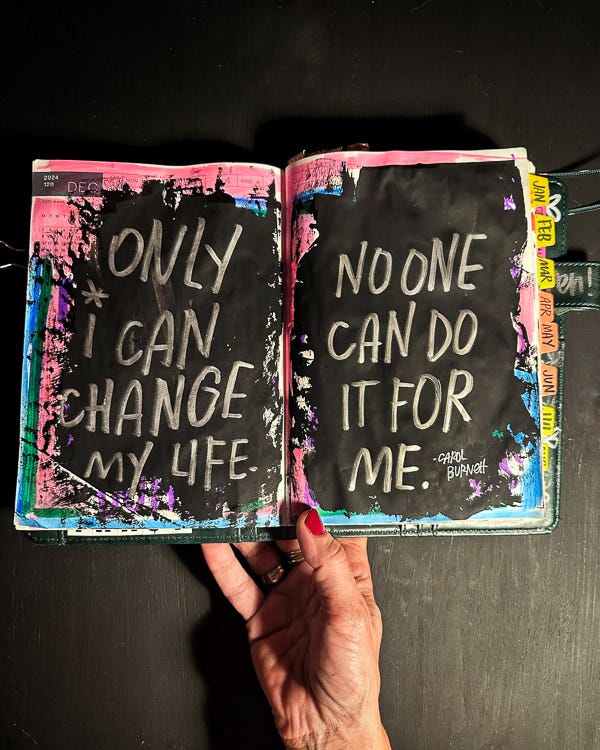 2024
12月
DEC
ONLY
* I CAN
CHANGE
MY LIFE.
NO ONE
CAN DO
IT FOR
ME.
-CAROL
BURNETT
JAN
FEB
MAR
APR
MAY
JUN